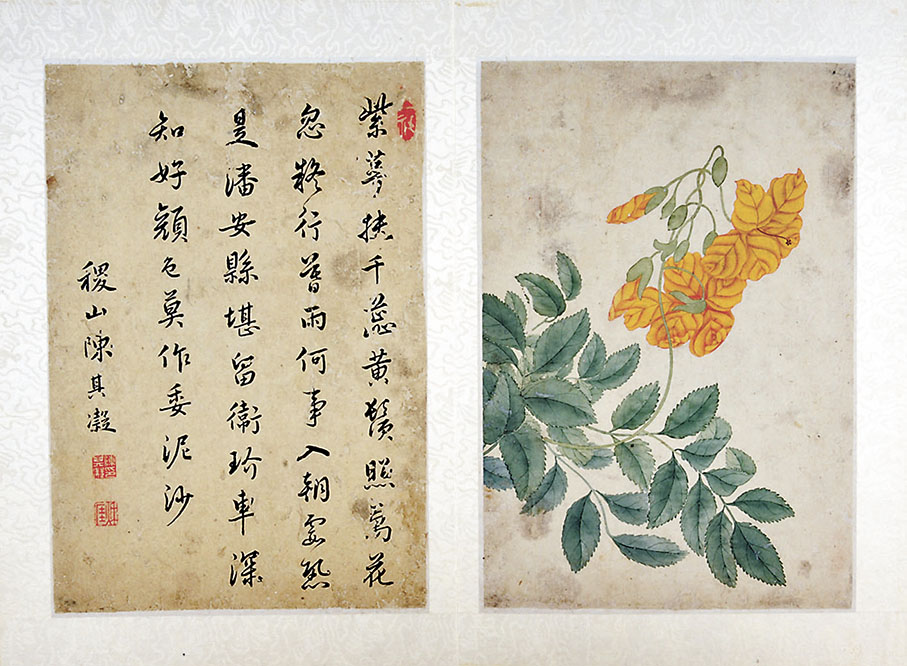 紫萼扶千蕊黄鬚照萬花
忽疑行暮雨何事入朝霞恐
是潘安縣堪留衛玠車深
知好顏色莫作委泥沙
稷山陳其凝